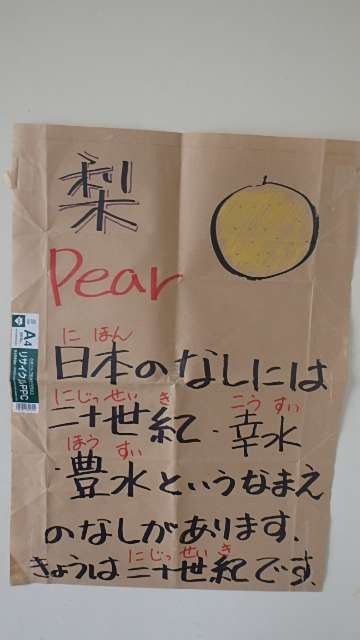 梨
Pear
に ほん
日本のなしには
にじっせい き こう すい
二十世紀・幸水
ほう すい
・豊水というなまえ
のなしがあります.
にじっせい き
きょうは二十世紀です.
A4
リサイクルPPC